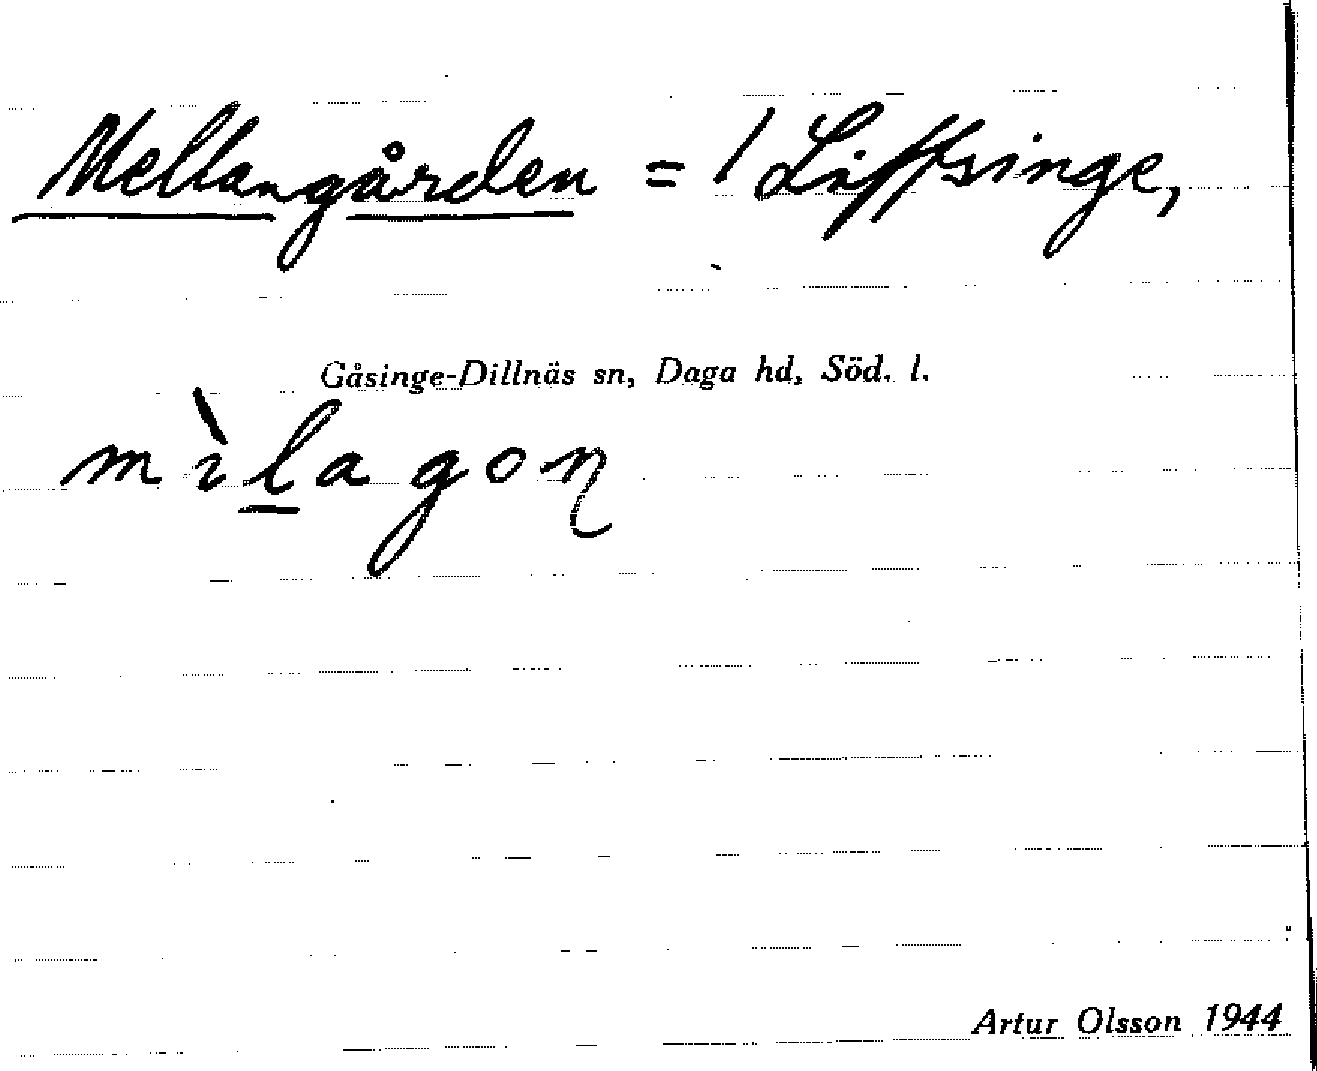 Mellangården = 1 Lippsinge,
Gåsinge-Dillnäs sn, Daga hd, Söd. l.
mìlagoɳ
Artur Olsson 1944